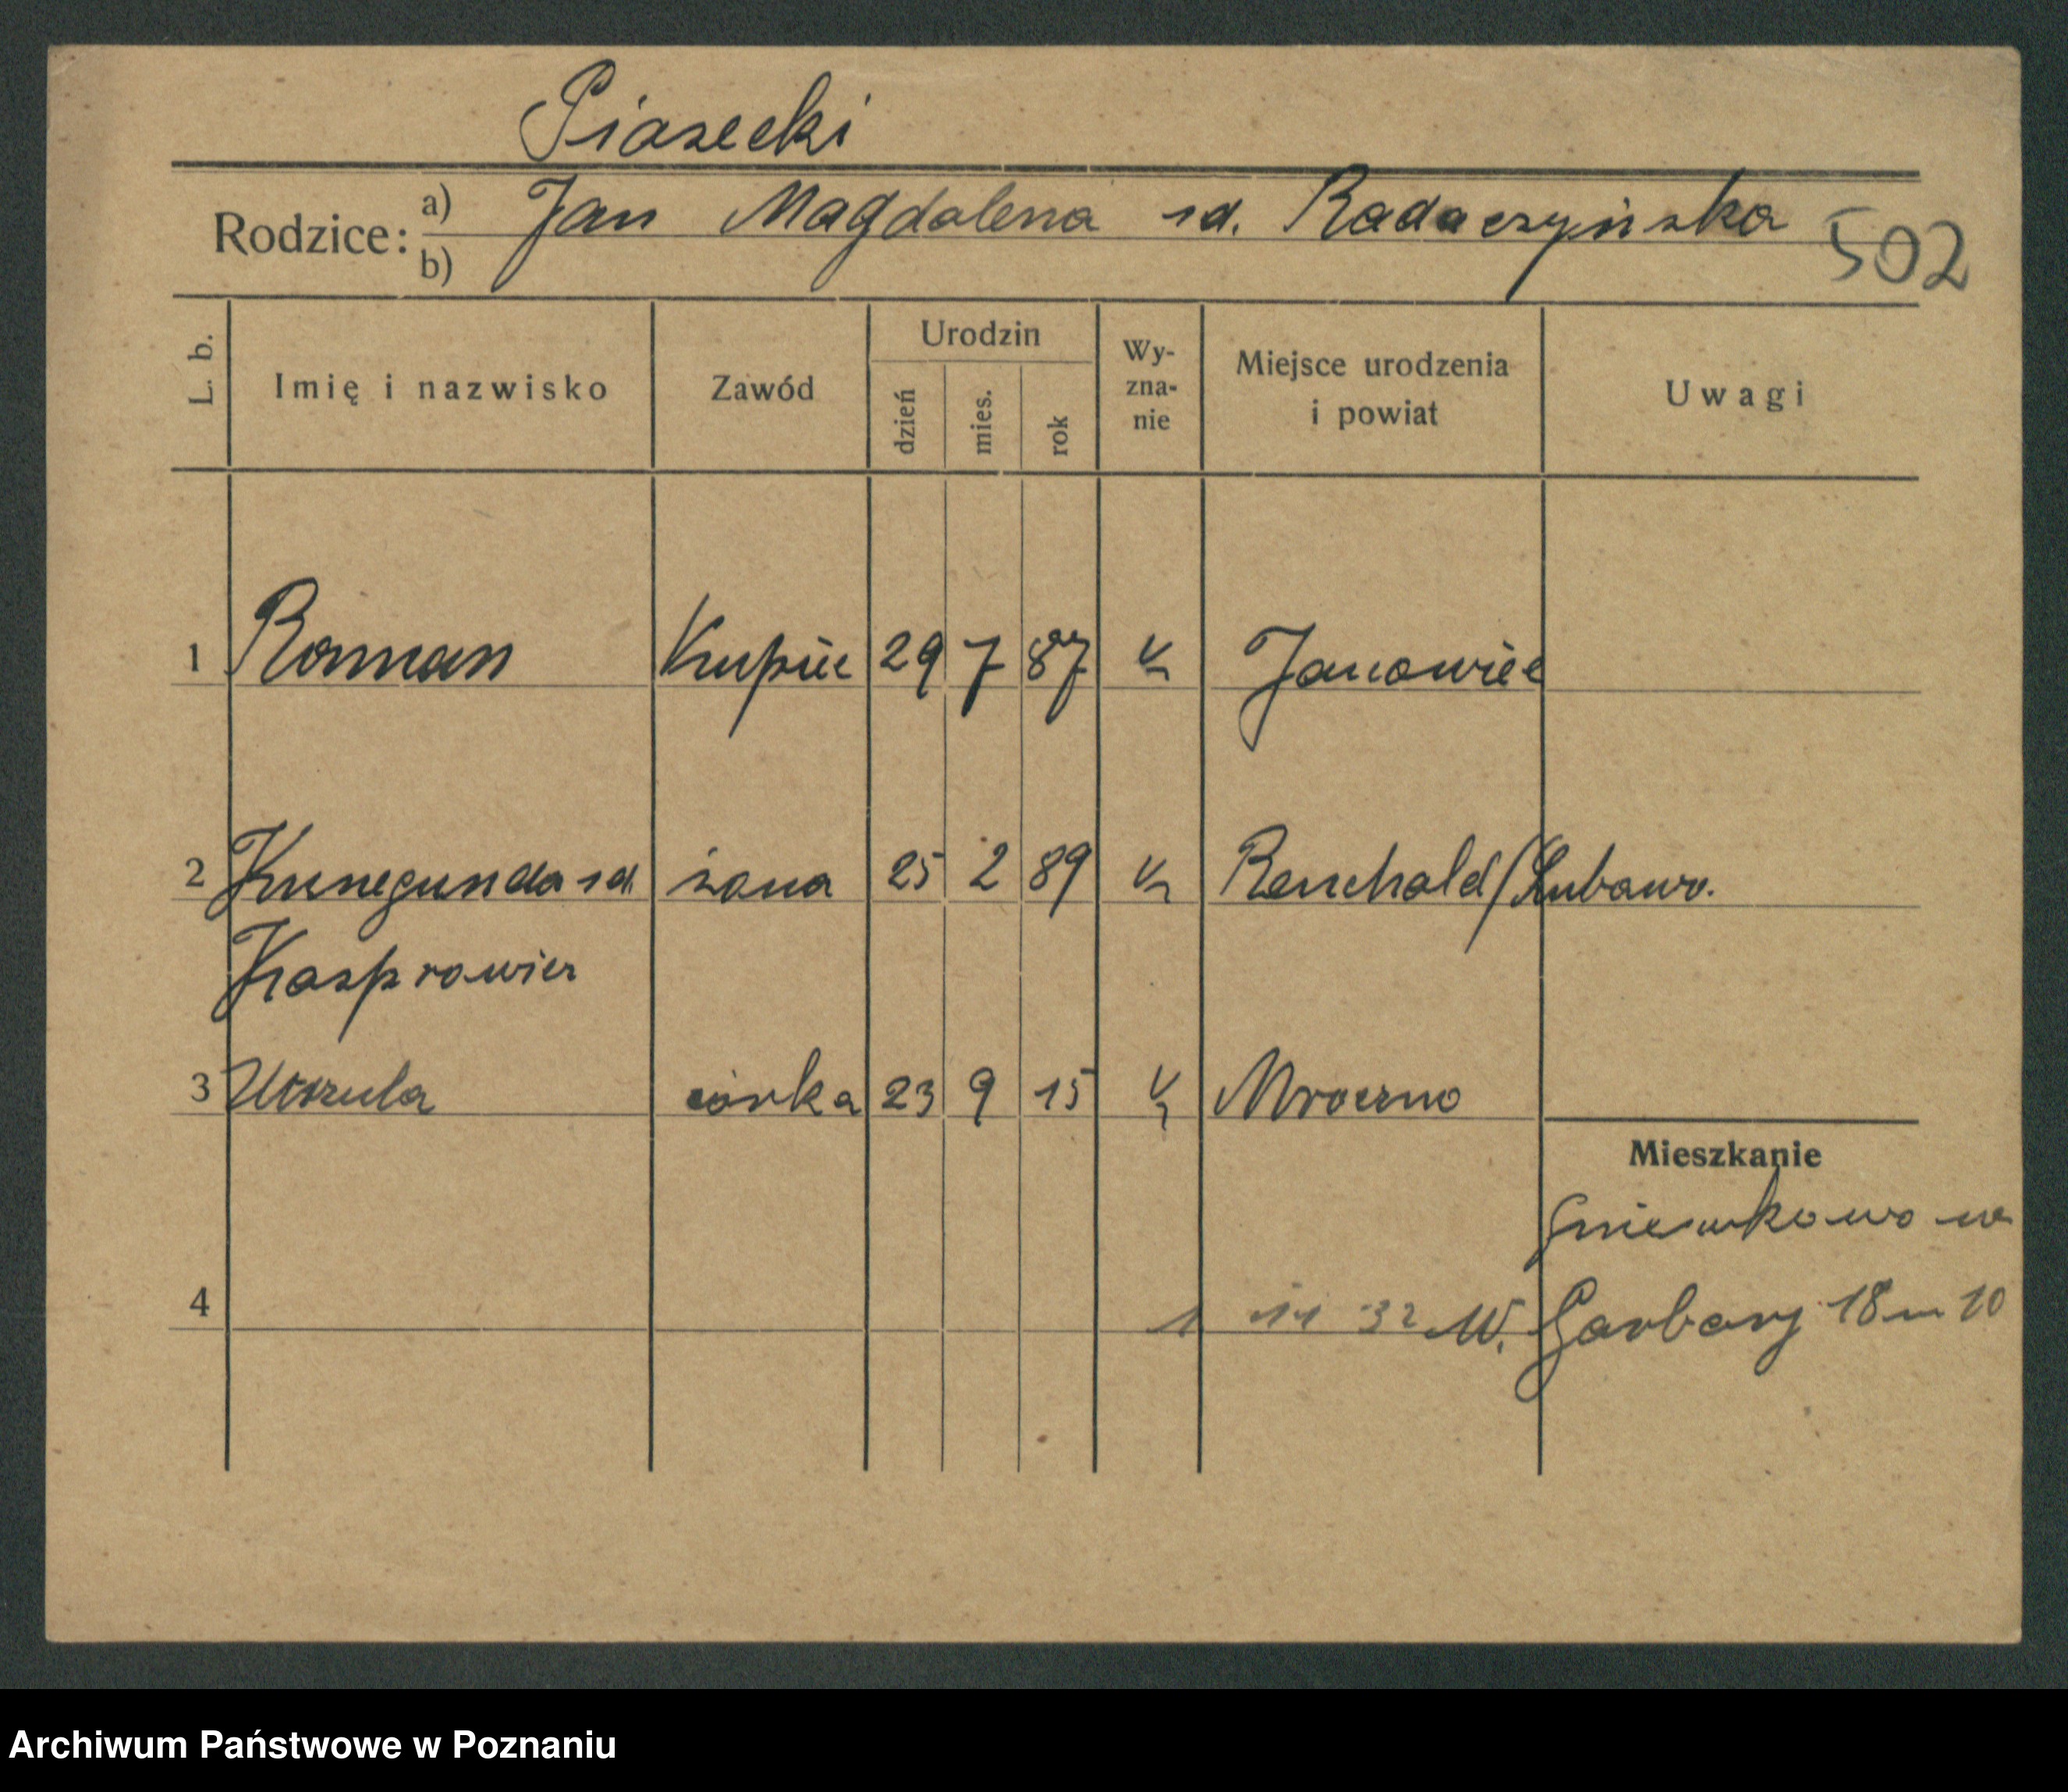 Piasecki
Rodzice: a) Jan Magdalena zd. Radaczyńska 502
b)
L. b. Imię i nazwisko Zawód Urodzin dzień mies. rok Wy-zna-nie Miejsce urodzenia i powiat Uwagi
1 Roman Kupiec 29 7 87 k Janowiec
2 Kunegunda zd. żona 25 2 89 k Renchald/Lubawa.
Kasprowicz
3 Urszula córka 23 9 15 k Mroczno
Mieszkanie
Gniewkowo
4 1 11 32 W. Garbary 18 m 10
Archiwum Państwowe w Poznaniu